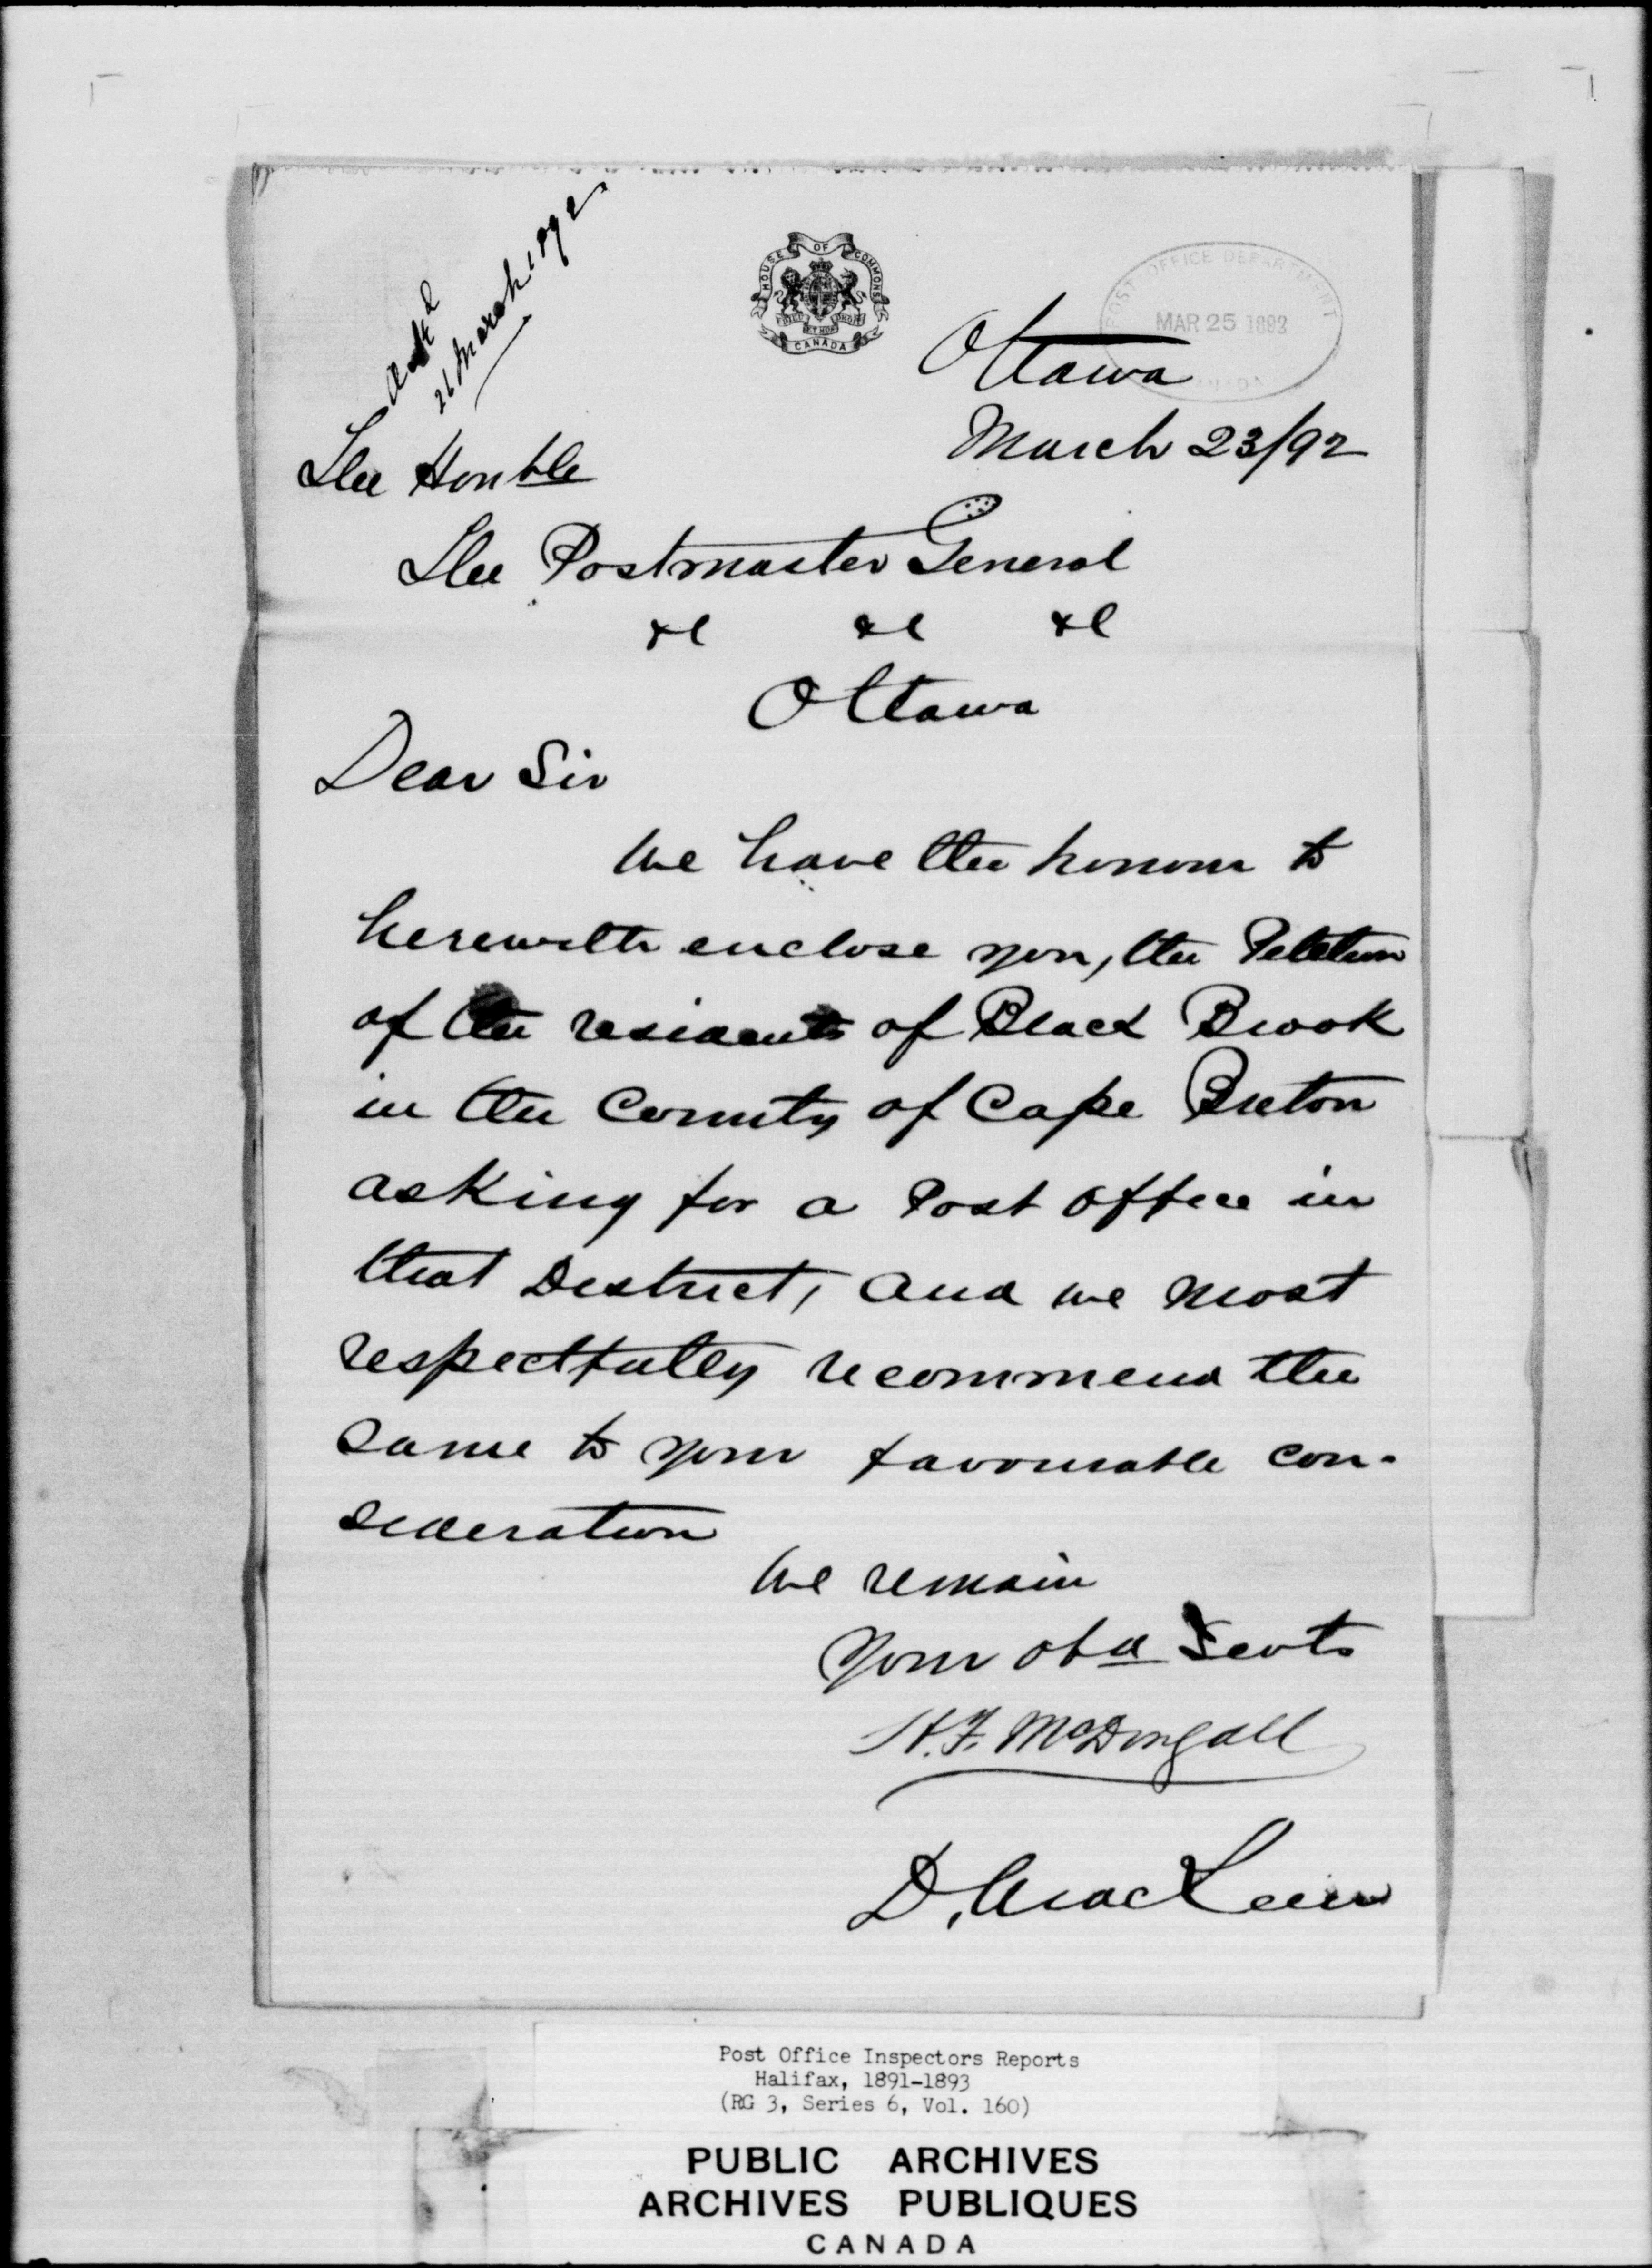 Ackd
26 March 1892
HOUSE OF COMMONS
CANADA
POST OFFICE DEPARTMENT
MAR 25 1892
Ottawa
March 23/92
The Honble
The Postmaster General
&c &c &c
Ottawa
Dear Sir
We have the honour to
herewith enclose you, the Petition
of the residents of Black Brook
in the County of Cape Breton
asking for a Post Office in
that District, and we most
respectfully recommend the
same to your favourable con-
sideration
We remain
Your obd Servts
H.F. McDougall
D. MacKeen
Post Office Inspectors Reports
Halifax, 1891-1893
(RG 3, Series 6, Vol. 160)
PUBLIC ARCHIVES
ARCHIVES PUBLIQUES
CANADA